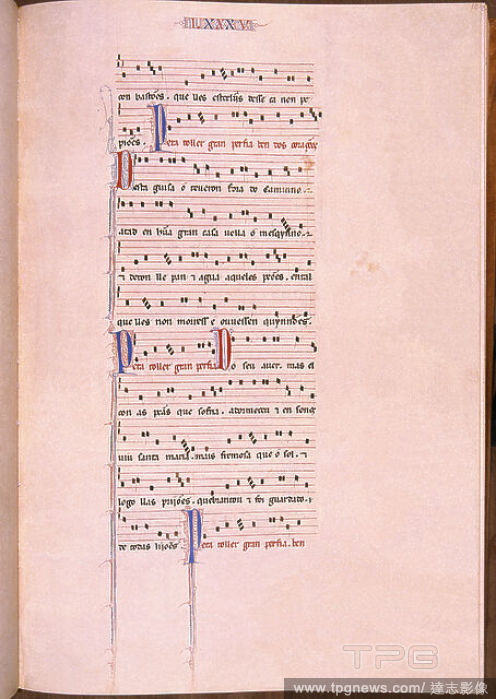 LXXXV
con bastões. que lles esterlĩis desse ca nen pe
piões. Pera toller gran perfia ben dos corações
Desta guisa o teueron fora do camin̄o.
atad en hũa gran casa uella o mesqȳno. ⁊
⁊ deron lle pan ⁊ agua aqueles peões. en tal
que lles non moiresse e ouuessen quȳnnões.
Pera toller gran perfia Do seu auer. mas el
con as pẽas que sofria. adormeceu ⁊ en sonos
uiu santa maria. mais fremosa que o sol. ⁊
logo llas prijões. quebrantou ⁊ foi guardado. ⁊
de todas lijões Pera toller gran perfia. ben
TPG
www.tpgnews.com / 達志影像